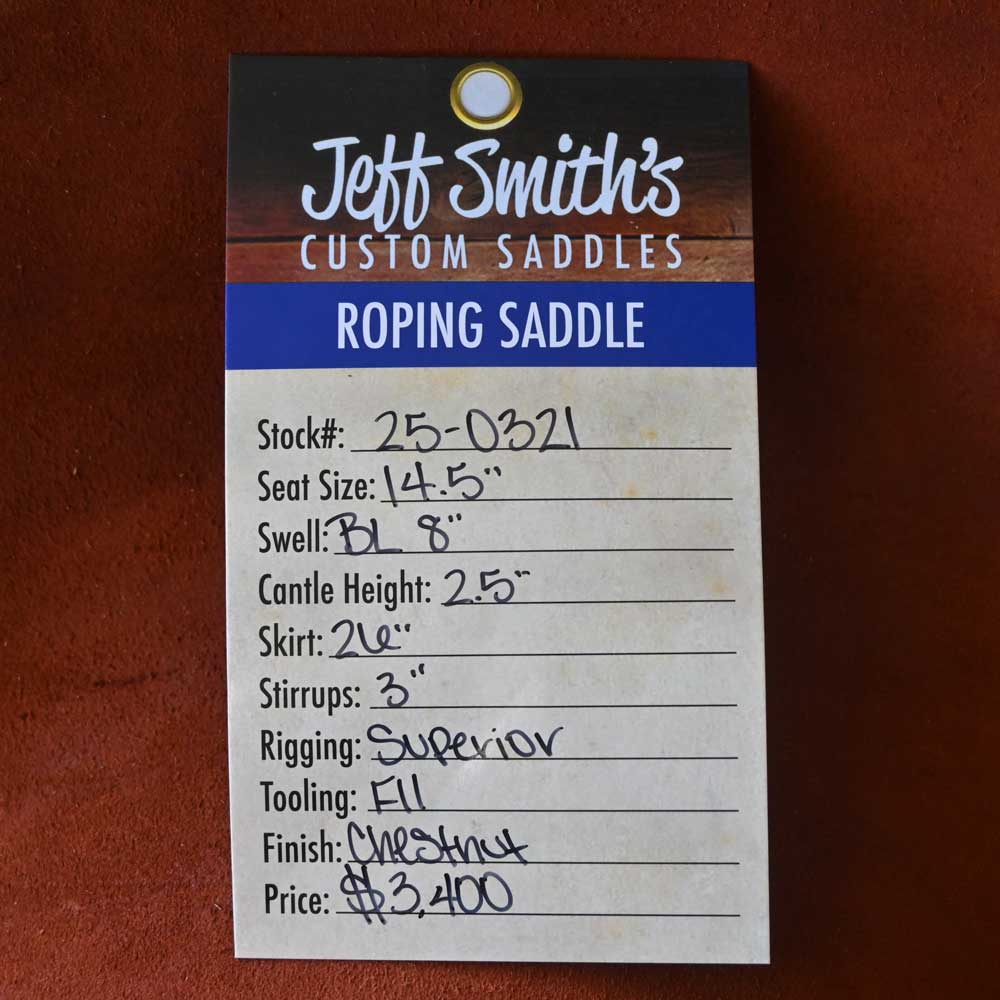 Jeff Smith's
CUSTOM SADDLES
ROPING SADDLE
Stock#: 25-0321
Seat Size: 14.5"
Swell: BL 8"
Cantle Height: 2.5"
Skirt: 26"
Stirrups: 3"
Rigging: Superior
Tooling: F11
Finish: Chestnut
Price: $3,400